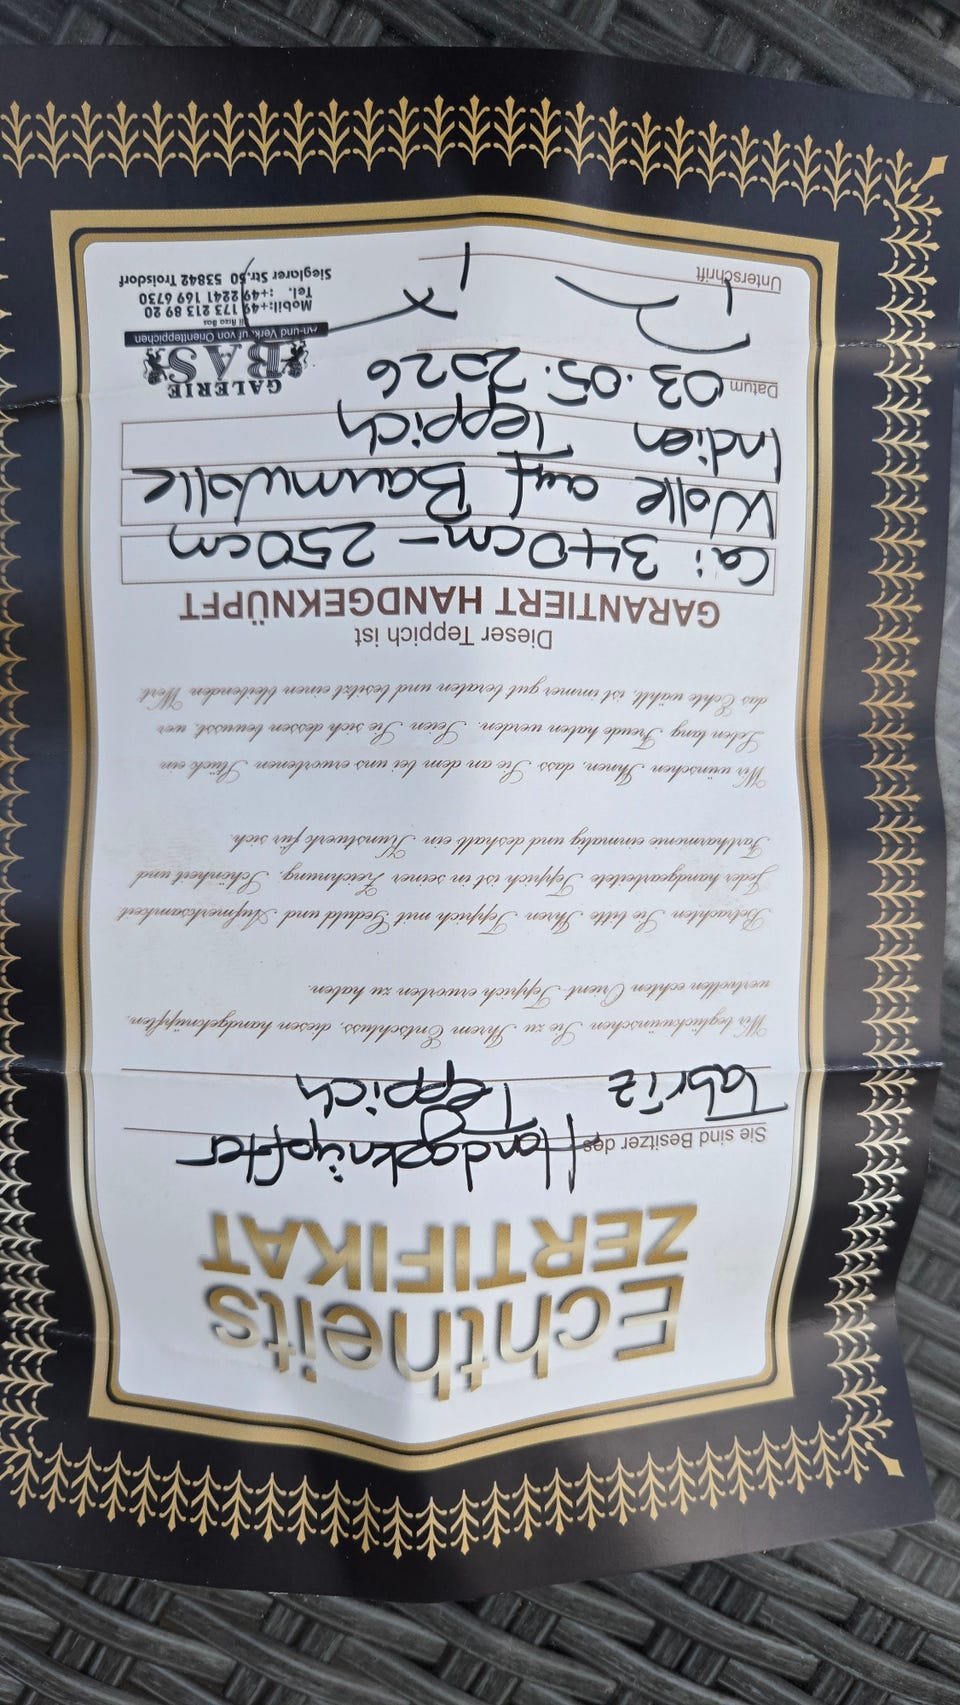 Echtheits
ZERTIFIKAT
Sie sind Besitzer des Handgeknüpfter
Tabriz Teppich
Wir beglückwünschen Sie zu Ihrem Entschluss, diesen handgeknüpften,
wertvollen echten Orient-Teppich erworben zu haben.
Betrachten Sie bitte Ihren Teppich mit Geduld und Aufmerksamkeit
Jeder handgearbeitete Teppich ist in seiner Zeichnung, Schönheit und
Farbharmonie einmalig und deshalb ein Kunstwerk für sich.
Wir wünschen Ihnen, dass Sie an dem bei uns erworbenen Stück ein
Leben lang Freude haben werden. Seien Sie sich dessen bewusst, wer
das Echte wählt, ist immer gut beraten und besitzt einen bleibenden Wert.
Dieser Teppich ist
GARANTIERT HANDGEKNÜPFT
Ca: 340cm - 250cm
Wolle auf Baumwolle
Indien Teppich
Datum 03.05.2026
GALERIE
BAS
An-und Verkauf von Orientteppichen
Mobil:+49 173 213 89 20
Tel. :+49 2241 169 6730
Sieglarer Str.50 53842 Troisdorf
Unterschrift